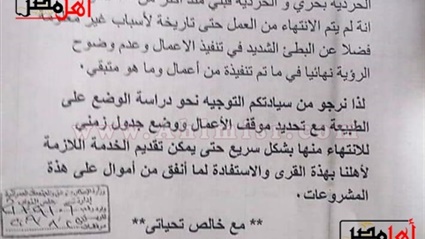 أهل مصر
الحردية بحري و الحردية قبلي منذ أكثر من
انة لم يتم الانتهاء من العمل حتى تاريخة لأسباب غير
فضلا عن البطئ الشديد في تنفيذ الاعمال وعدم وضوح
الرؤية نهائيا في ما تم تنفيذة من أعمال وما هو متبقي.
لذا نرجو من سيادتكم التوجيه نحو دراسة الوضع على
الطبيعة مع تحديد موقف الأعمال ووضع جدول زمني
للانتهاء منها بشكل سريع حتى يمكن تقديم الخدمة اللازمة
لأهلنا بهذة القرى والاستفادة لما أنفق من أموال على هذة
المشروعات.
** مع خالص تحياتى**
أهل مصر